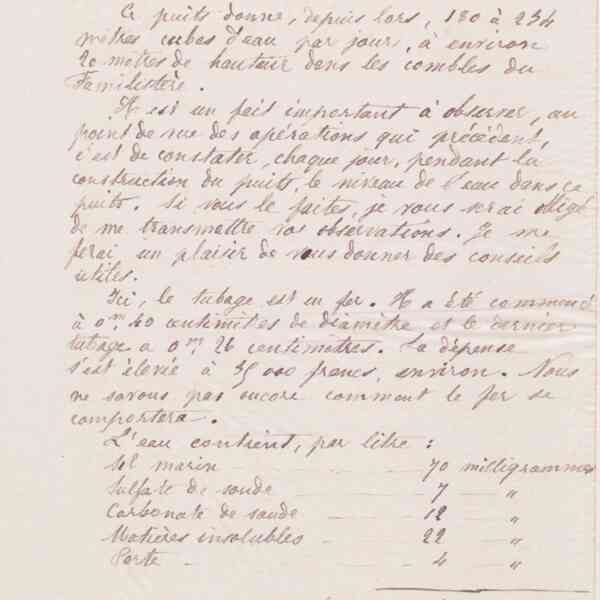 Ce puits donne, depuis lors, 180 à 234
mètres cubes d'eau par jour, à environ
20 mètres de hauteur dans les combles du
Familistère.
Il est un fait important à observer, au
point de vue des opérations qui précèdent,
c'est de constater, chaque jour, pendant la
construction du puits, le niveau de l'eau dans ce
puits. Si vous le faites, je vous serai obligé
de me transmettre vos observations. Je me
ferai un plaisir de vous donner des conseils
utiles.
Ici, le tubage est en fer. Il a été commencé
à 0m,40 centimètres de diamètre, et le dernier
tubage a 0m,26 centimètres. La dépense
s'est élevée à 35000 francs, environ. Nous
ne savons pas encore comment le fer se
comportera.
L'eau contient, par litre :
Sel marin 70 milligrammes
Sulfate de soude 7 "
Carbonate de soude 12 "
Matières insolubles 22 "
Perte 4 "